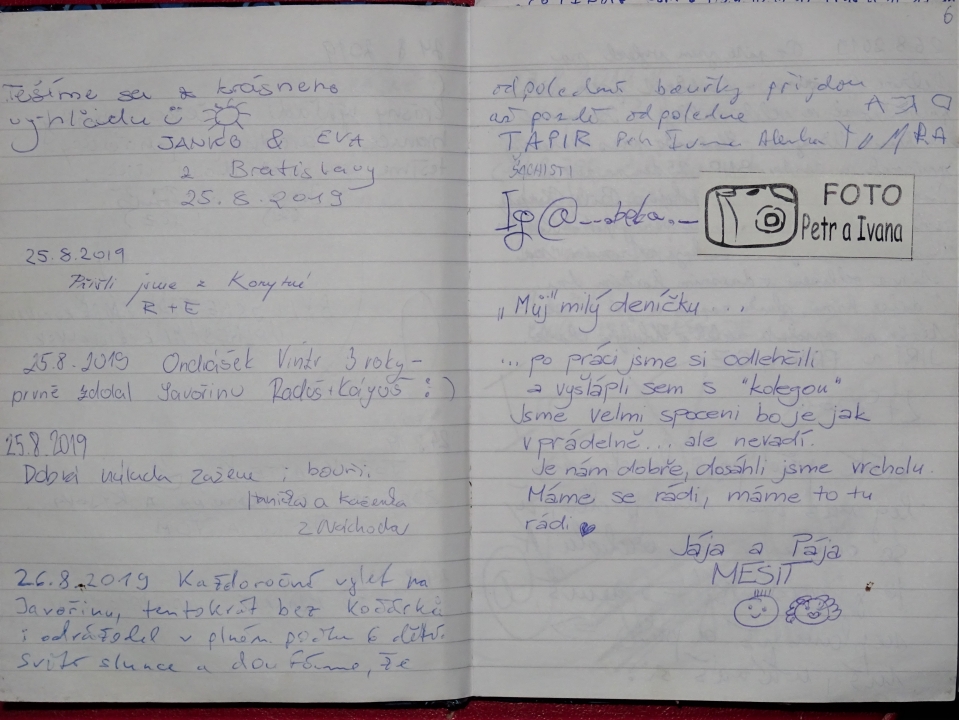 Těšíme sa z krásneho
vyhľadu
JANKO & EVA
z Bratislavy
25.8.2019
25.8.2019
Přišli jsme z Korytné
R + E
25.8.2019 Ondrášek Vintr 3 roky -
prvně zdolal Javořinu Raduš + Kájuš :)
25.8.2019
Dobrá nálada zažene i bouři.
a Kačenka
z Náchoda
26.8.2019 Každoroční výlet na
Javořinu, tentokrát bez kočárků
i odrážedel v plném počtu 6 dětí.
Svítí slunce a doufáme, že
6
odpolední bouřky přijdou
až pozdě odpoledne
TAPIR Petr Ivana Alenka
ŠACHISTI
Ig@
FOTO
Petr a Ivana
„Můj" milý deníčku ...
... po práci jsme si odlehčili
a vyšlápli sem s "kolegou"
Jsme velmi spoceni bo je jak
v prádelně... ale nevadí.
Je nám dobře, dosáhli jsme vrcholu.
Máme se rádi, máme to tu
rádi
Jája a Pája
MESIT